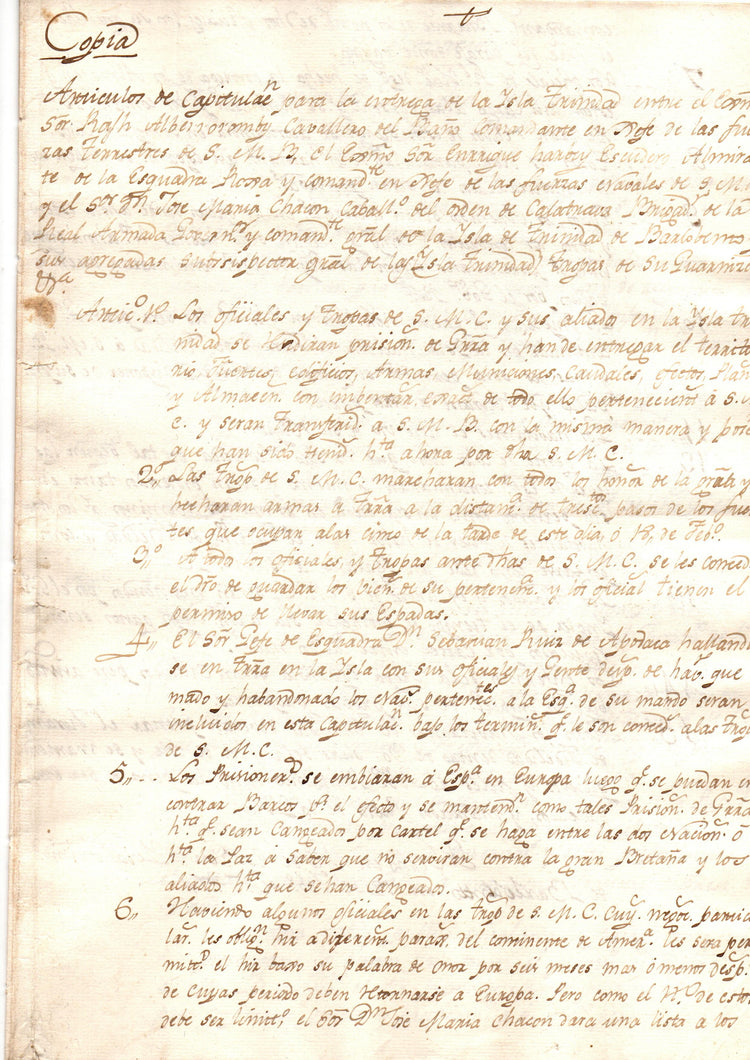 Copia
Articulos de Capitulaⁿ para la entrega de la Isla Trinidad entre el Exmo
Sōr. Ralph Albercromby Cavallero del Baño Comandante en Xefe de las fuer
zas Terrestres de S. M. B, El Exmo Sōr Enrrique harvy Escudero Almiran
te de la Esquadra Roxa y comandᵗᵉ en Xefe de las fuerzas navales de S. M.
y el Sōr Dⁿ Jose Maria Chacon Caballᵒ del orden de Calatrava Brigadʳ de la
Real Armada Govorⁿʳ y comandᵗᵉ gral de la Isla de Trinidad de Barlobento
sus agregadas Subinspector gralˢ de las Isla Trinidad, tropas de su Guarnizⁿ
&ᵃ
Articᵒ 1º Los oficiales y tropas de S. M. C. y sus aliados en la Isla tri
nidad se Rendiran prisionˢ de Grra y han de entregar el territo
rio, Fuertes, edificios, Armas, Municiones, Caudales, efectos, Plan
y Almacenˢ con imbentarˢ exactˢ de todo ello pertenecienᵗ á S. M.
C. y seran transferidˢ a S. M. B. con la misma manera y pose
que han sido tenidˢ hᵗᵃ ahora por dha S. M. C.
2º Las tropˢ de S. M. C. marcharan con todos los honorˢ de la grra y
hecharan armas à Trra a la distamᵃ de trescᵗᵒˢ pasos de los fuer
tes, que ocupan a las cinco de la tarde de este dia, 18, de Febº
3º A todos los oficiales y tropas ante dhas de S. M. C. se les conced
el dro de guardar los bienˢ de su pertenencˢ y los oficialˢ tienen el
permiso de llevar sus Espadas.
4,, El Sōr Gefe de Esquadra Dⁿ Sebastian Ruiz de Apodaca hallando
se en trra en la Isla con sus oficiales y Gente despˢ de habʳ que
mado y habandonado los navˢ pertenecᵗᵉˢ a la Esqᵃ de su mando seran
incluidos en esta Capitulaⁿ bajo los terminˢ qᵉ le son concedˢ a las trop
de S. M. C.
5,, Los Prisionerˢ se embiaran á Espᵃ en Europa luego qᵉ se puedan en
contrar Barcos pᵃ el efecto y se mantendⁿ como tales Prisionˢ de Grra
hᵗᵃ qᵉ sean Cangeados por cartel qᵉ se haga entre las dos nacionˢ ó
hᵗᵃ la Paz à Saber que no serviran contra la gran Bretaña y los
aliados hᵗᵃ que se han Cangeado.
6,, Haviendo algunos oficiales en las tropˢ de S. M. C. cuyˢ negocˢ partic
larˢ les obligⁿ hir a diferentˢ parajˢ del continente de Amerᵃ les sera per
mitᵈᵒ el hir baxo su palabra de onor por seis meses mas ó menos despˢ
de cuyas periodo deben Retornarse a Europa. Pero como el Nº de esto
debe ser limitᵒ, el Sōr Dⁿ Jose Maria Chacon dara una lista a los